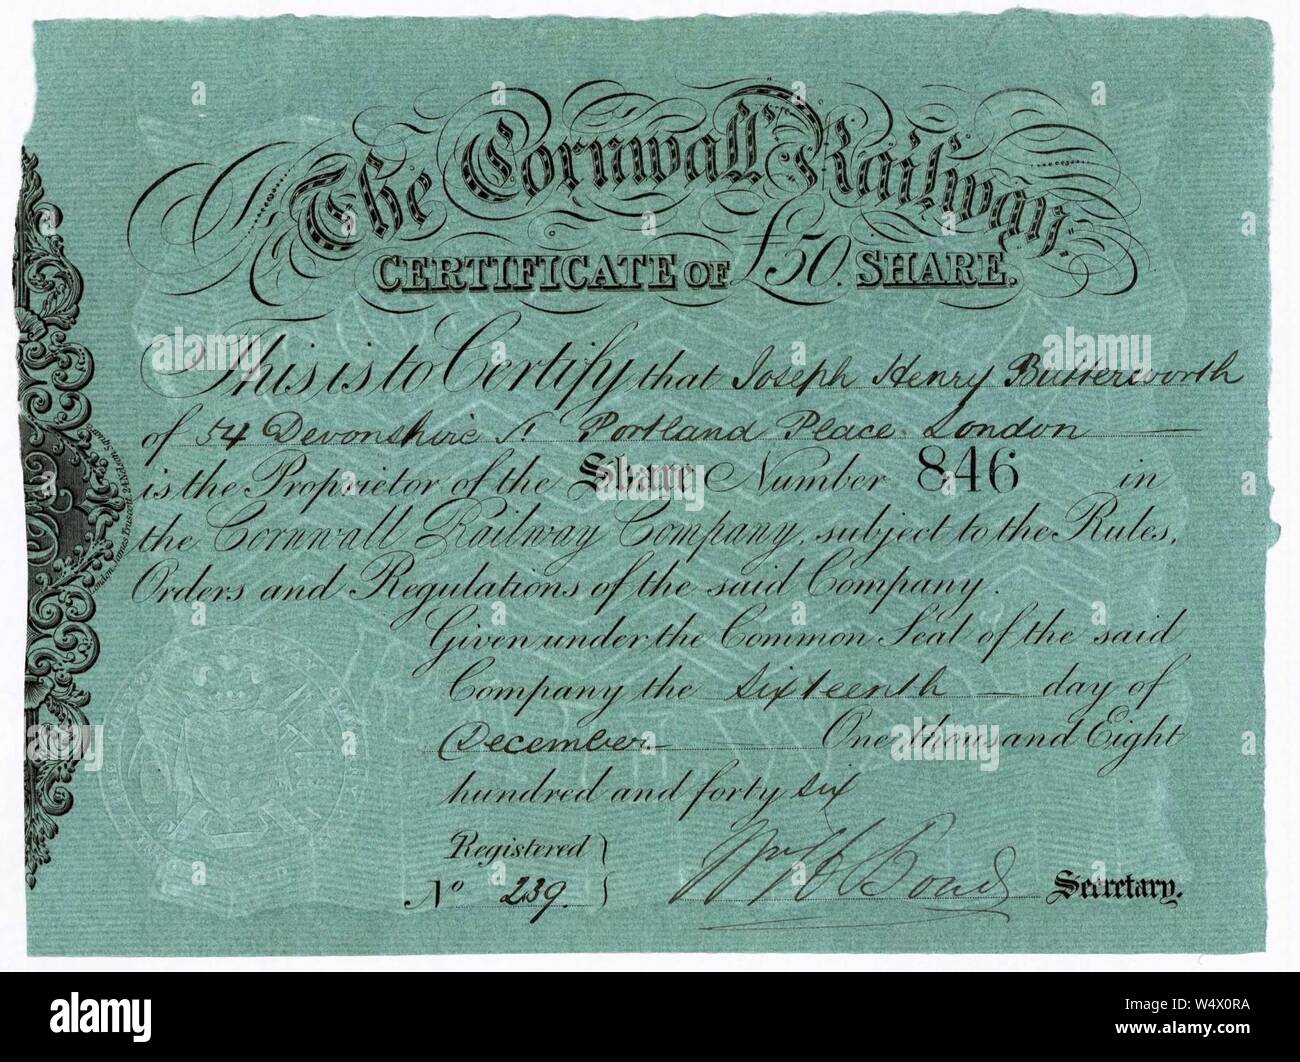 The Cornwall Railway.
CERTIFICATE OF £50. SHARE.
This is to Certify that Joseph Henry Butterworth
of 54 Devonshire St Portland Place London
is the Proprietor of the Share Number 846 in
the Cornwall Railway Company, subject to the Rules,
Orders and Regulations of the said Company.
Given under the Common Seal of the said
Company the sixteenth day of
December One thousand Eight
hundred and forty six
Registered
No 239.
Wm H Bond Secretary.
alamy
alamy
Image ID: W4X0RA
www.alamy.com